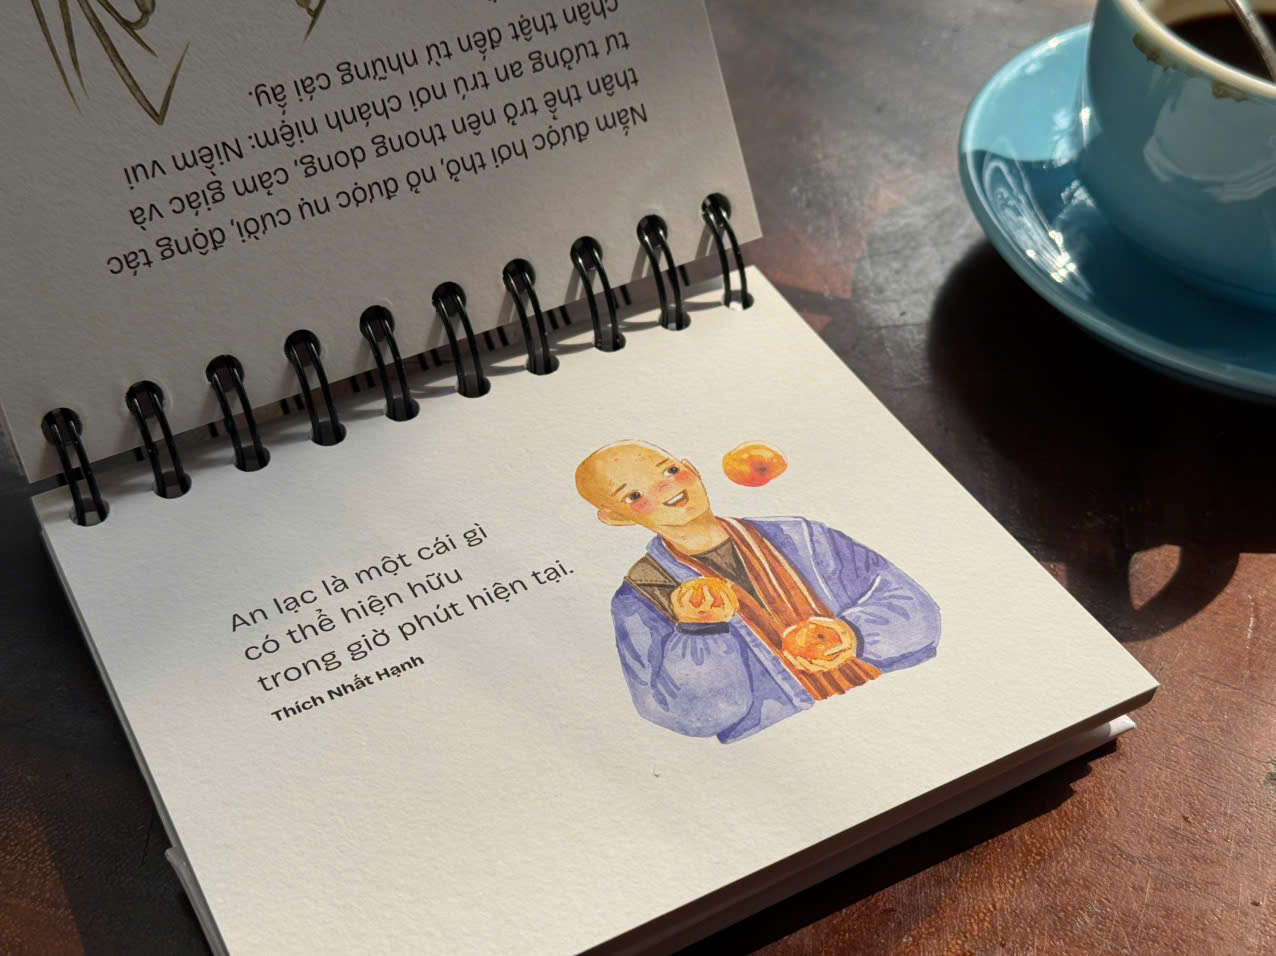 Nắm được hơi thở, nở được nụ cười, động tác
thân thể trở nên thong dong, cảm giác và
tư tưởng an trú nơi chánh niệm: Niềm vui
chân thật đến từ những cái ấy.
An lạc là một cái gì
có thể hiện hữu
trong giờ phút hiện tại.
Thích Nhất Hạnh